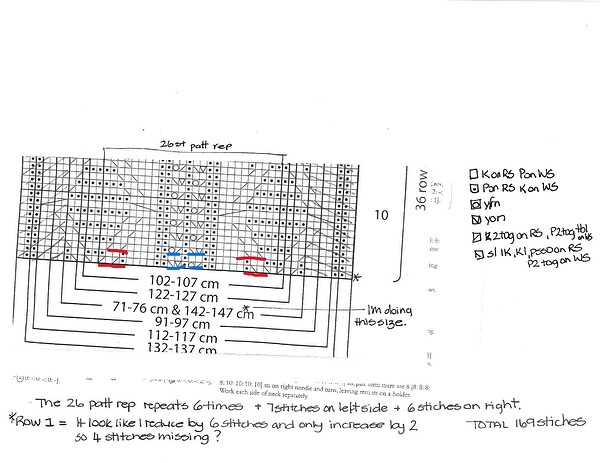 26st patt rep
10
36 row
K on RS P on WS
P on RS K on WS
yfn
yon
K2tog on RS, P2tog tbl on WS
sl 1K, K1, psso on RS
P2tog on WS
102-107 cm
122-127 cm
71-76 cm & 142-147 cm
91-97 cm
112-117 cm
132-137 cm
*
*
I'm doing
this size.
8: 10: 10: 10: 10] sts on right needle and turn, leaving rem sts on a holder.
Work each side of neck separately.
- The 26 patt rep repeats 6 times + 7 stitches on left side + 6 stiches on right.
*Row 1 = It look like I reduce by 6 stitches and only increase by 2
so 4 stitches missing ?
TOTAL 169 stiches